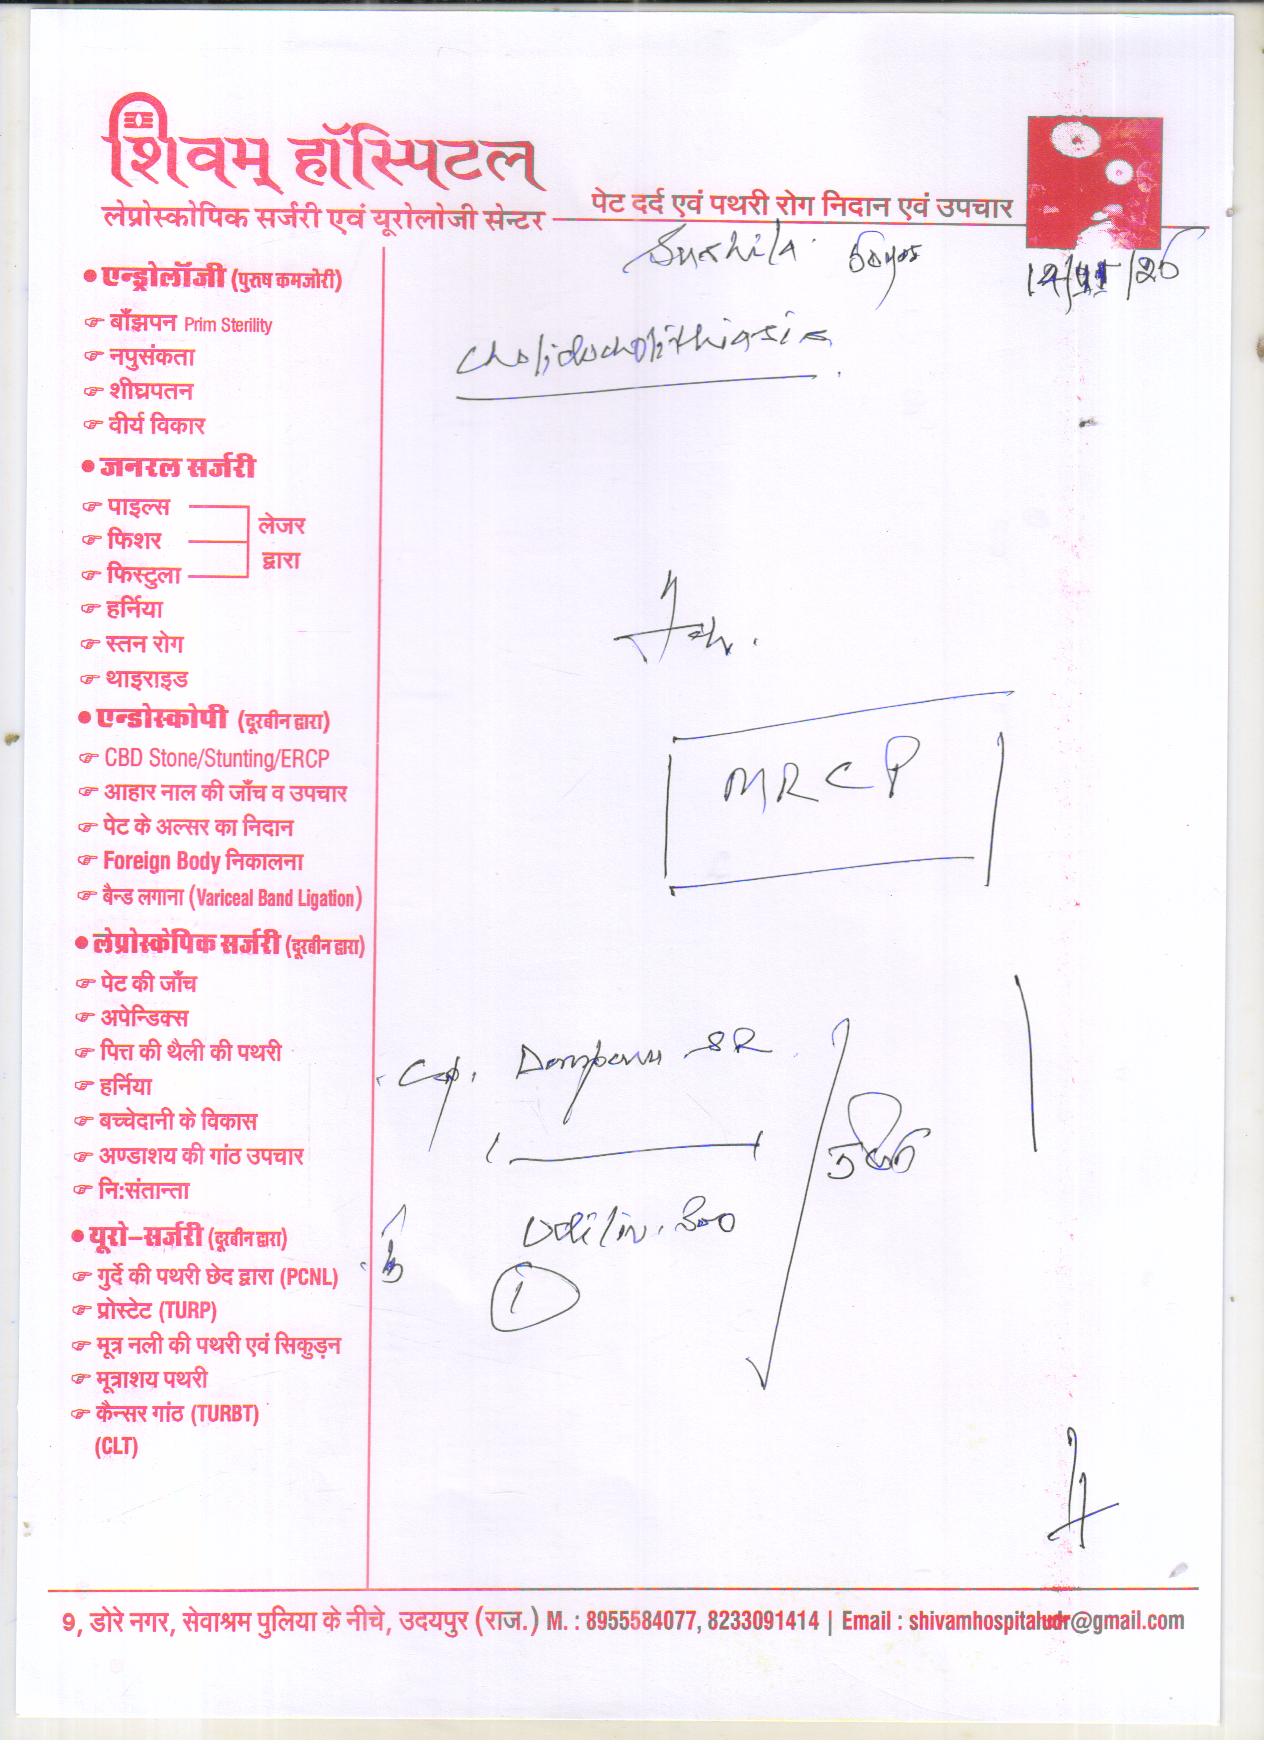 शिवम् हॉस्पिटल
लेप्रोस्कोपिक सर्जरी एवं यूरोलोजी सेन्टर
पेट दर्द एवं पथरी रोग निदान एवं उपचार
Sushila
• एन्ड्रोलॉजी (पुरुष कमजोरी)
☞ बाँझपन Prim Sterility
☞ नपुसंकता
☞ शीघ्रपतन
☞ वीर्य विकार
• जनरल सर्जरी
☞ पाइल्स
☞ फिशर
☞ फिस्टुला
लेजर
द्वारा
☞ हर्निया
☞ स्तन रोग
☞ थाइराइड
• एन्डोस्कोपी (दूरबीन द्वारा)
☞ CBD Stone/Stunting/ERCP
☞ आहार नाल की जाँच व उपचार
☞ पेट के अल्सर का निदान
☞ Foreign Body निकालना
☞ बैन्ड लगाना (Variceal Band Ligation)
• लेप्रोस्केपिक सर्जरी (दूरबीन द्वारा)
☞ पेट की जाँच
☞ अपेन्डिक्स
☞ पित्त की थैली की पथरी
☞ हर्निया
☞ बच्चेदानी के विकास
☞ अण्डाशय की गांठ उपचार
☞ नि:संतान्ता
• यूरो-सर्जरी (दूरबीन द्वारा)
☞ गुर्दे की पथरी छेद द्वारा (PCNL)
☞ प्रोस्टेट (TURP)
☞ मूत्र नली की पथरी एवं सिकुड़न
☞ मूत्राशय पथरी
☞ कैन्सर गांठ (TURBT)
(CLT)
Cholidocholithiasis
Adv.
MRCP
Cap. SR
Udiliv. 300
1
9, डोरे नगर, सेवाश्रम पुलिया के नीचे, उदयपुर (राज.) M. : 8955584077, 8233091414 | Email : shivamhospitaludr@gmail.com